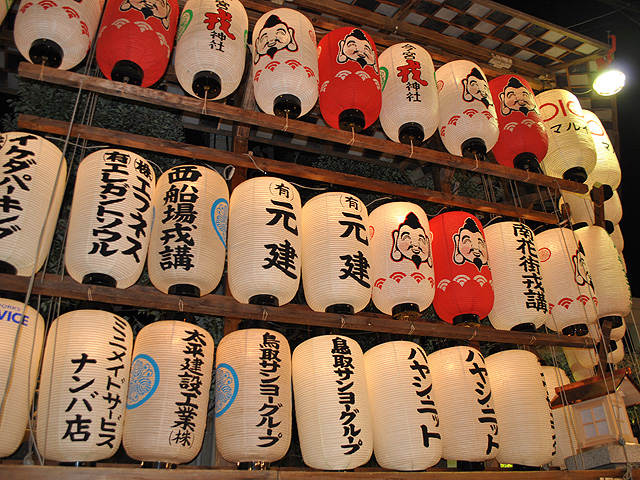 今宮
戎
神社
今宮
戎
神社
OIO
マルイ
イダパーキング
(有)エレガントソウル
(株)エフネス
西船場戎講
(有)元建
(有)元建
南栫街戎講
WORKS
VICE
ミニメイドサービス
ナンバ店
太平建設工業(株)
鳥取サンヨーグループ
鳥取サンヨーグループ
ハヤシ.ニット
ハヤシ.ニット